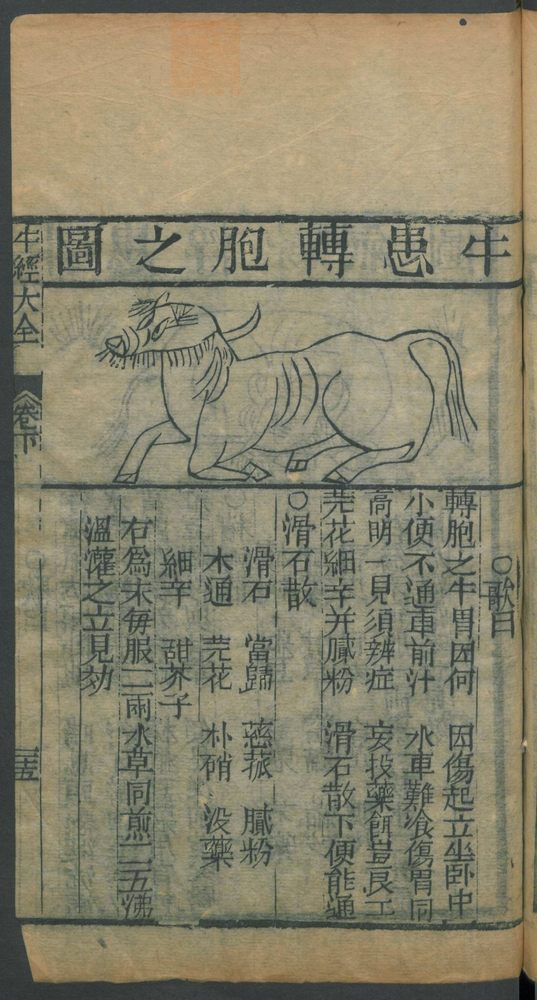 牛患轉胞之圖
○歌曰
轉胞之牛胃因何　因傷起立坐卧中
小便不通車前汁　水車難飡傷胃同
高明一見須辨症　妄投藥餌豈良工
芫花細辛并膩粉　滑石散下便能通
○滑石散
滑石　當歸　葱菰　膩粉
木通　芫花　朴硝　没藥
細辛　甜芥子
右為末每服二兩水草同煎三五沸
溫灌之立見効
牛經大全　卷下　三五